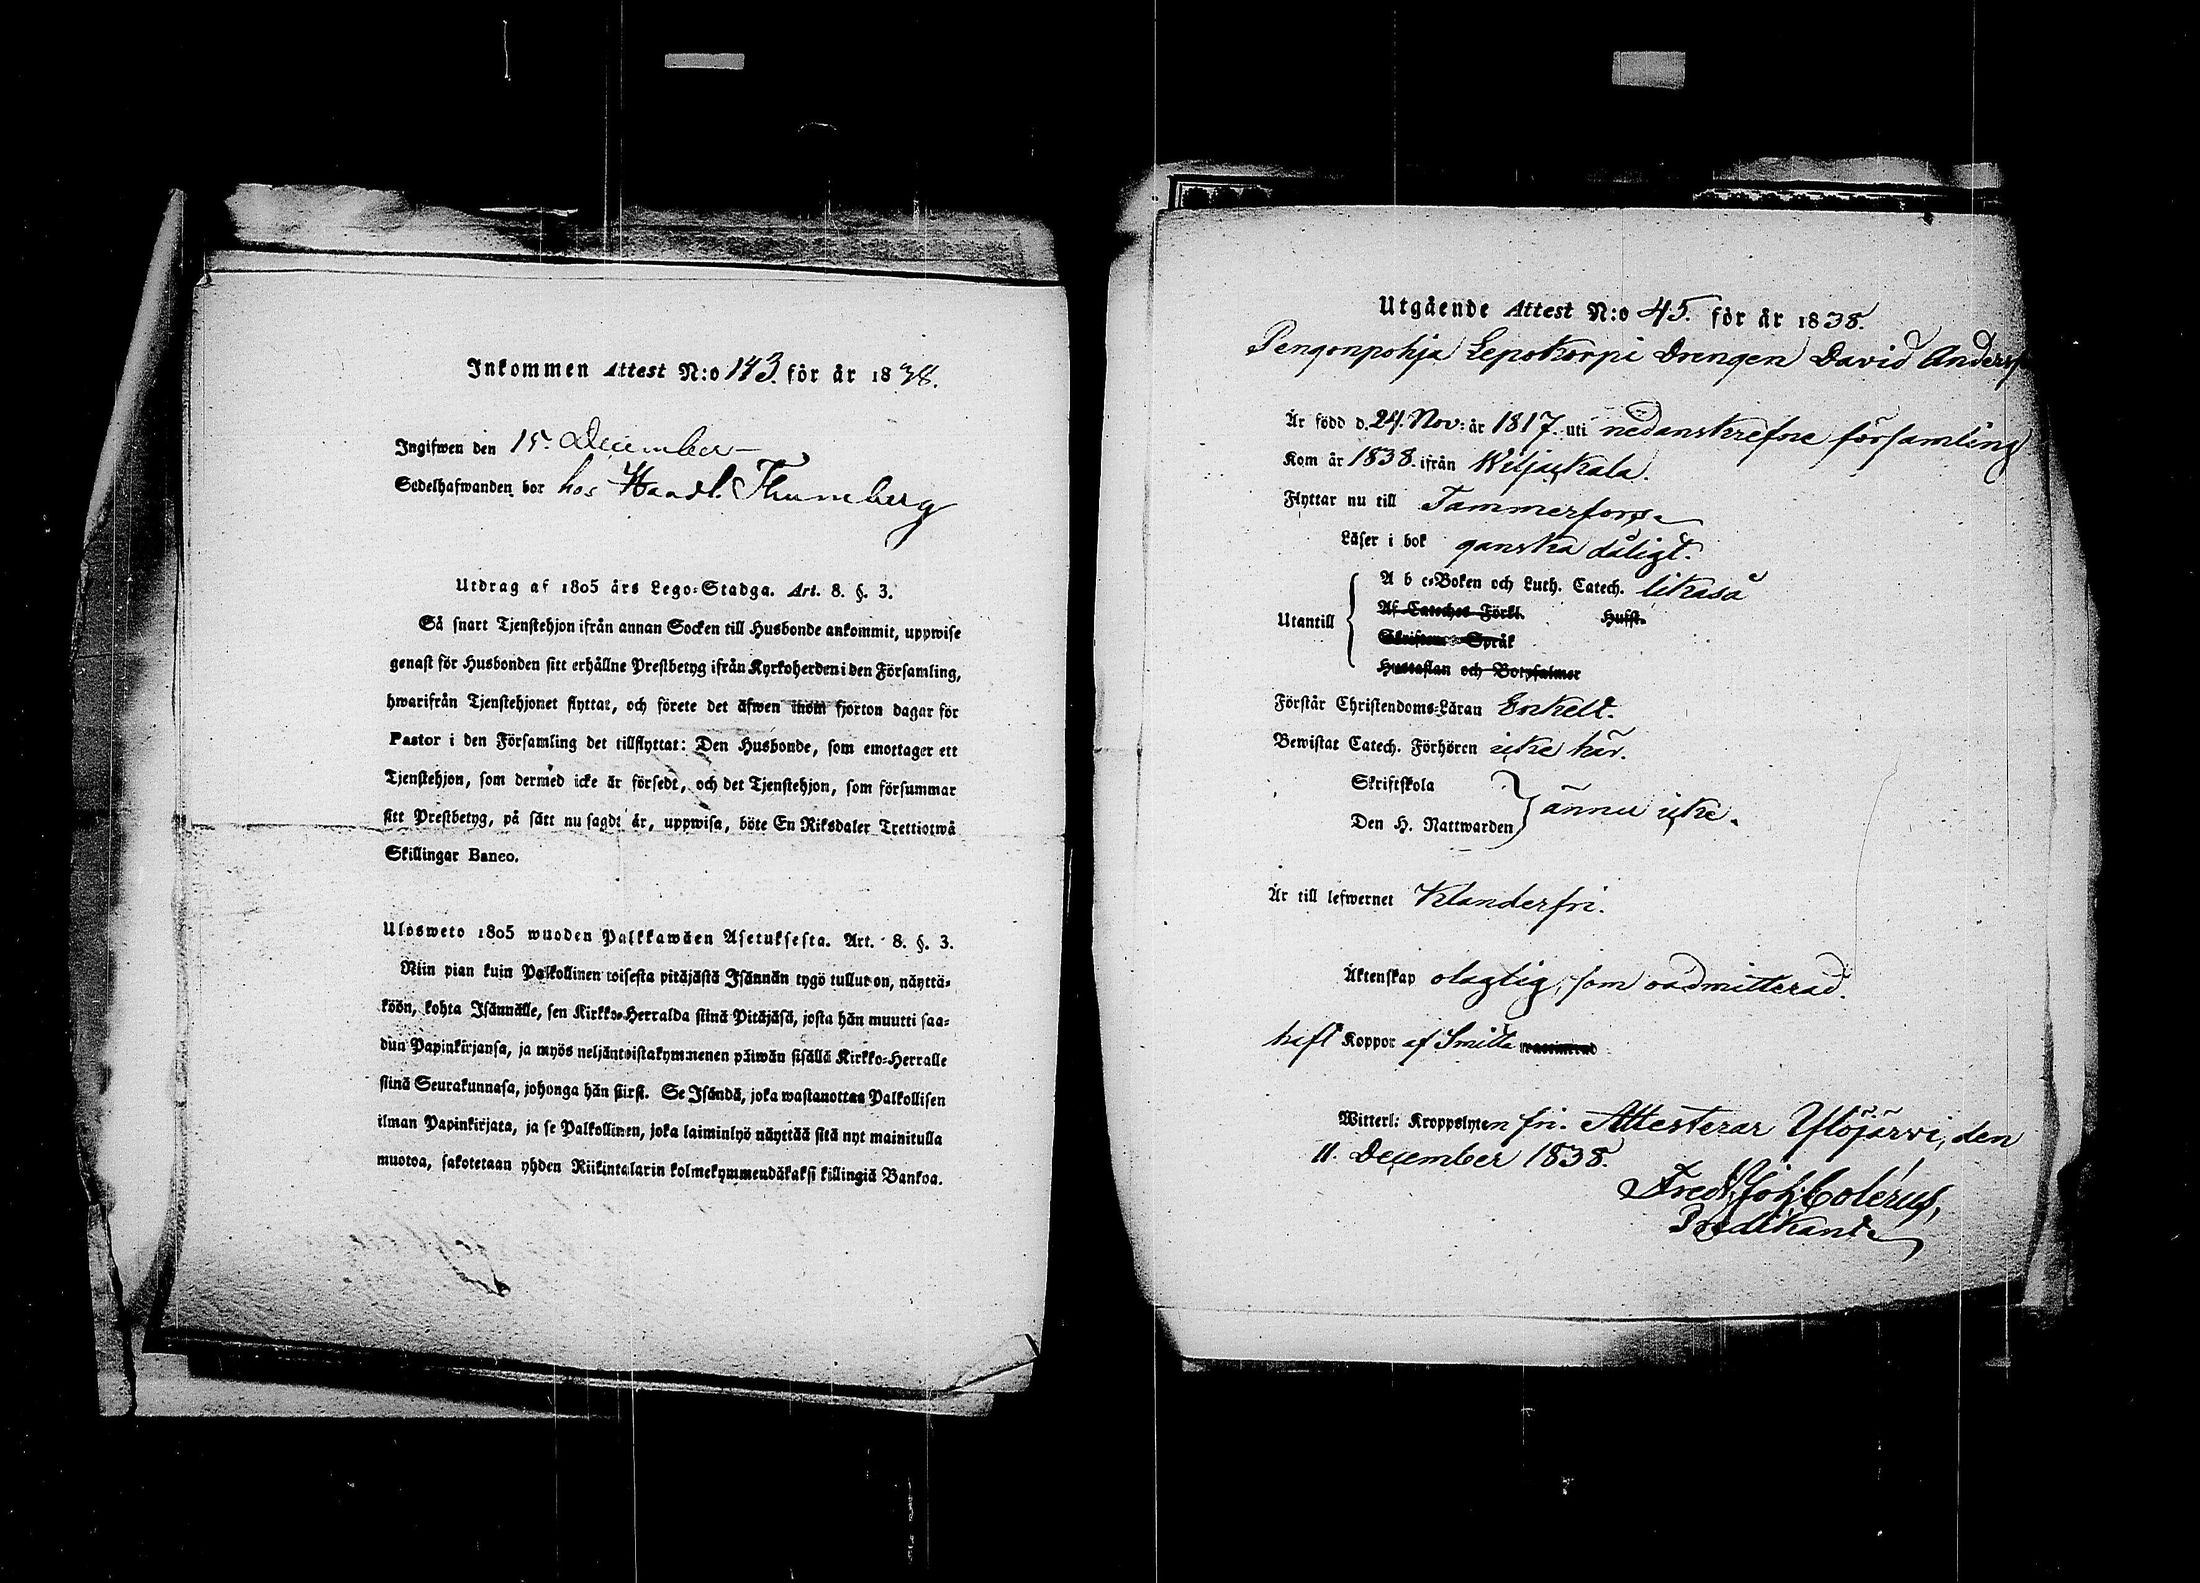 Inkommen Attest N:o 143. för år 1838.
Ingifwen den 15. December
Sedelhafwanden bor hos Handl. Thunberg
Utdrag af 1805 års Lego-Stadga. Art. 8. §. 3.
Så snart Tjenstehjon ifrån annan Socken till Husbonde ankommit, uppwise
genast för Husbonden sitt erhållne Prestbetyg ifrån Kyrkoherden i den Församling,
hwarifrån Tjenstehjonet flyttat, och förete det äfwen inom fjorton dagar för
Pastor i den Församling det tillflyttat: Den Husbonde, som emottager ett
Tjenstehjon, som dermed icke är försedt, och det Tjenstehjon, som försummar
sitt Prestbetyg, på sätt nu sagdt är, uppwisa, böte En Riksdaler Trettiotwå
Skillingar Banco.
Ulosweto 1805 wuoden Palkkawäen Asetuksesta. Art. 8. §. 3.
Niin pian kuin Palkollinen toisesta pitäjästä Isännän tygö tullut on, näyttä-
köön, kohta Isännälle, sen Kirkko-Herralda siinä Pitäjäsä, josta hän muutti saa-
dun Papinkirjansa, ja myös neljäntoistakymmenen päiwän sisällä Kirkko-Herralle
siinä Seurakunnasa, johonga hän siirsi. Se Isändä, joka wastanottaa Palkollisen
ilman Papinkirjata, ja se Palkollinen, joka laiminlyö näyttää sitä nyt mainitulla
muotoa, sakotetaan yhden Riikintalarin kolmekymmendäkaksi killingiä Bankoa.
Utgående Attest N:o 45. för år 1838.
Pengonpohja Lepokorpi Drengen David Anders
Är född d. 24. Nov: år 1817. uti nedanskrefne församling
Kom år 1838. ifrån Weljakkala.
Flyttar nu till Tammerfors
Läser i bok ganska dåligt.
Utantill
A b c-Boken och Luth. Catech. likaså
Af Cateches Förkl. Hufst.
Skriftens Språk
Hustaflan och Botpsalmer
Förstår Christendoms-Läran Enkelt.
Bewistat Catech. Förhören icke här.
Skriftskola
Den H. Nattwarden
ännu icke.
Är till lefwernet Klanderfri.
Äktenskap olaglig, som oadmitterad.
haft Koppor af Smitta vaccinerad
Witterl: Kroppslyten fri. Attesterar Ylöjärvi, den
11. December 1838.
Fredr. Joh: Colérus,
Predikant